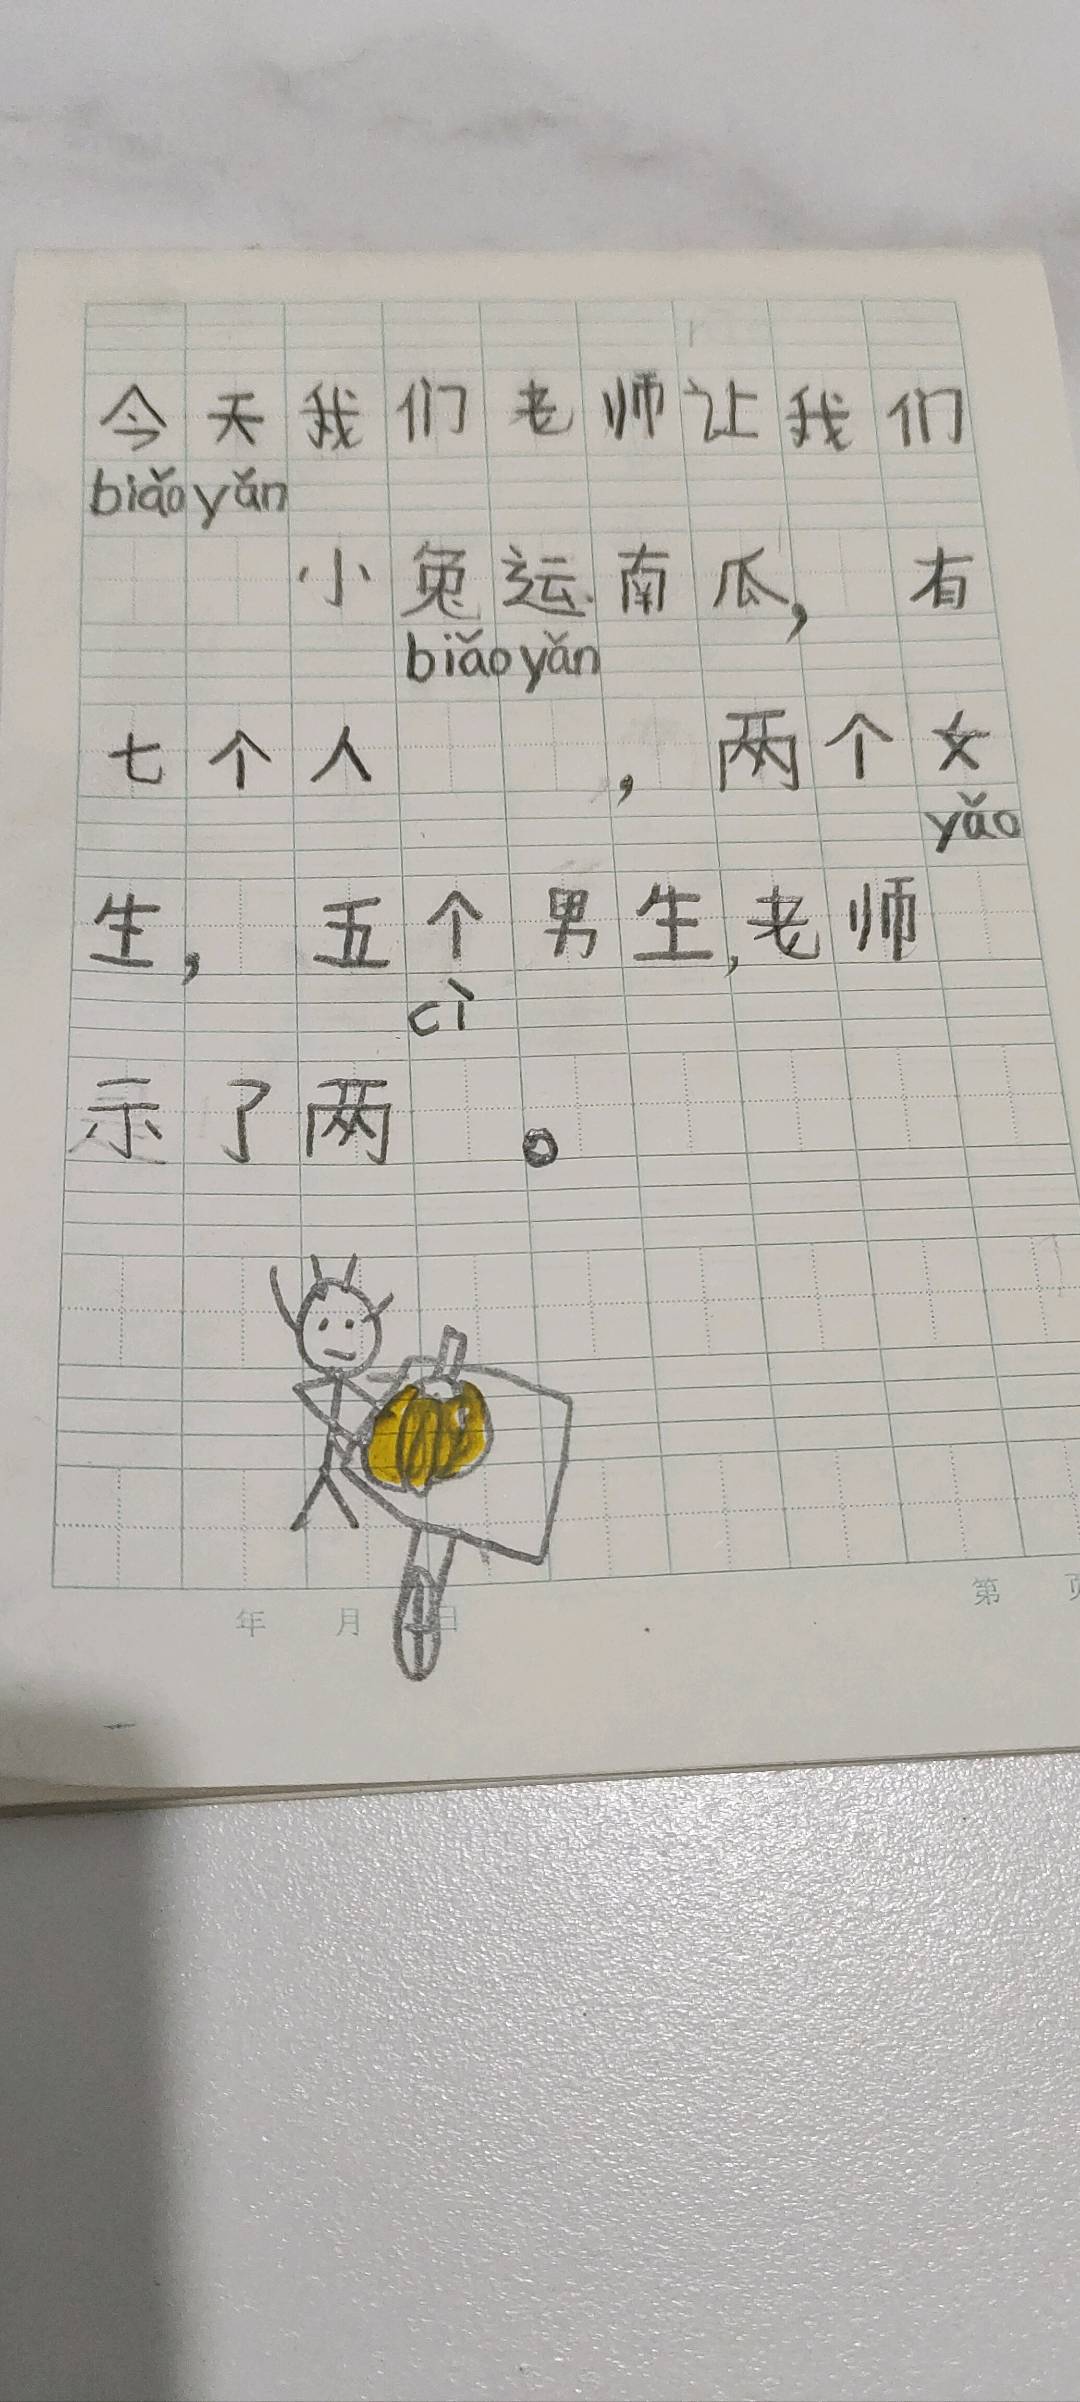 今天我们老师让我们
biǎo yǎn
小兔运南瓜，有
biǎo yǎn
七个人，两个女
yǎo
生，五个男生，老师
cì
示了两。
年 月 日
第 页